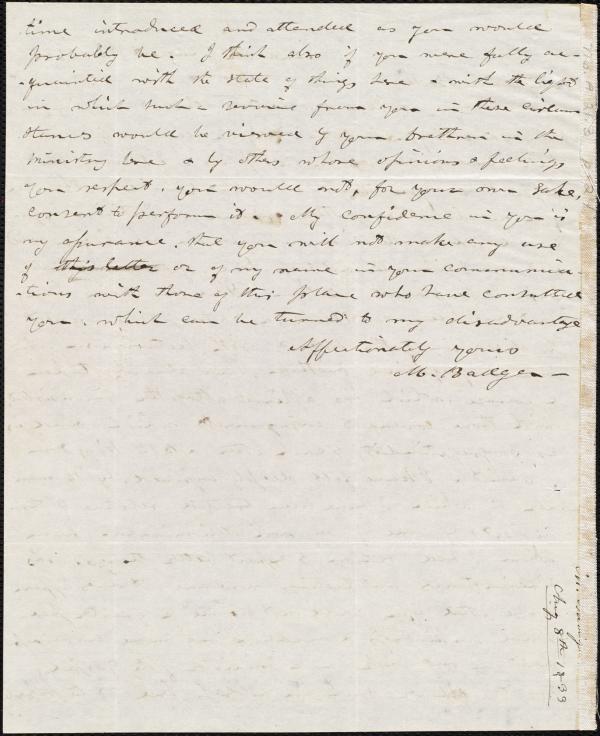 time introduced and attended as you would
probably be. I think also if you were fully ac-
-quainted with the state of things here & with the light
in which such a service from you in these circum
stances would be viewed by your brethren in the
ministry here & by others whose opinions & feelings
you respect, you would not, for your own sake,
consent to perform it. My confidence in you is
my assurance, that you will not make any use
of this letter or of my name in your communica-
-tions with those of this place who have consulted
you, which can be turned to my disadvantage
Affectionately yours
M. Badger
Aug 8th 1833